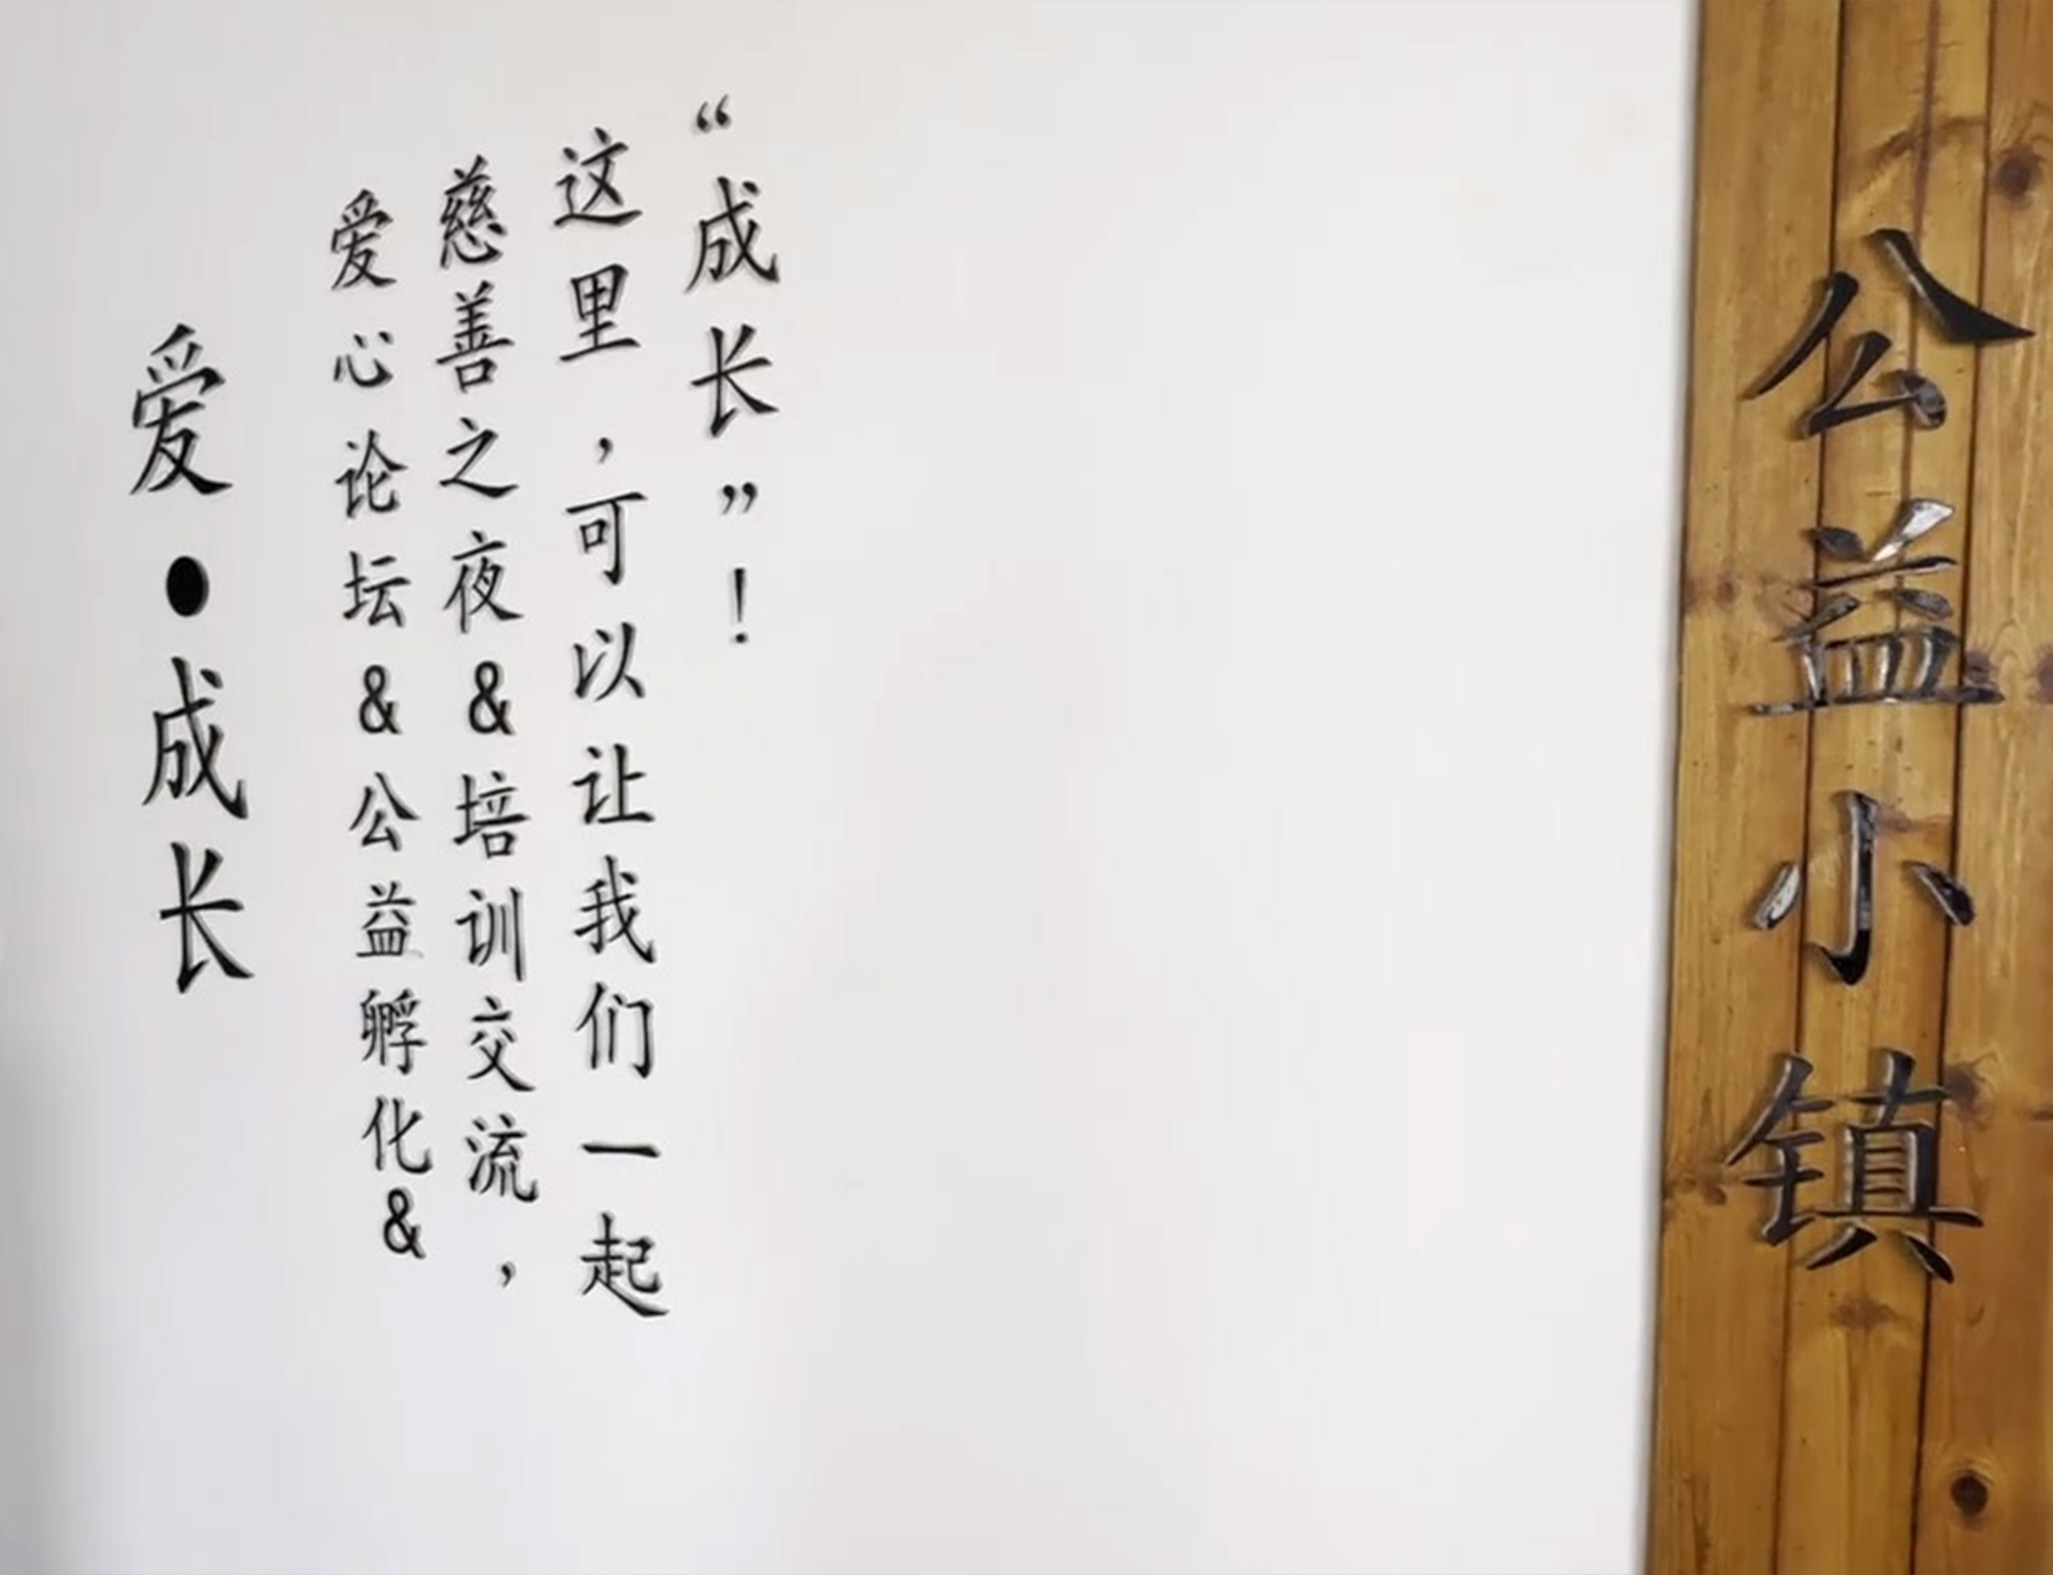 爱·成长
爱心论坛&公益孵化&
慈善之夜&培训交流，
这里，可以让我们一起
“成长”！
公益小镇